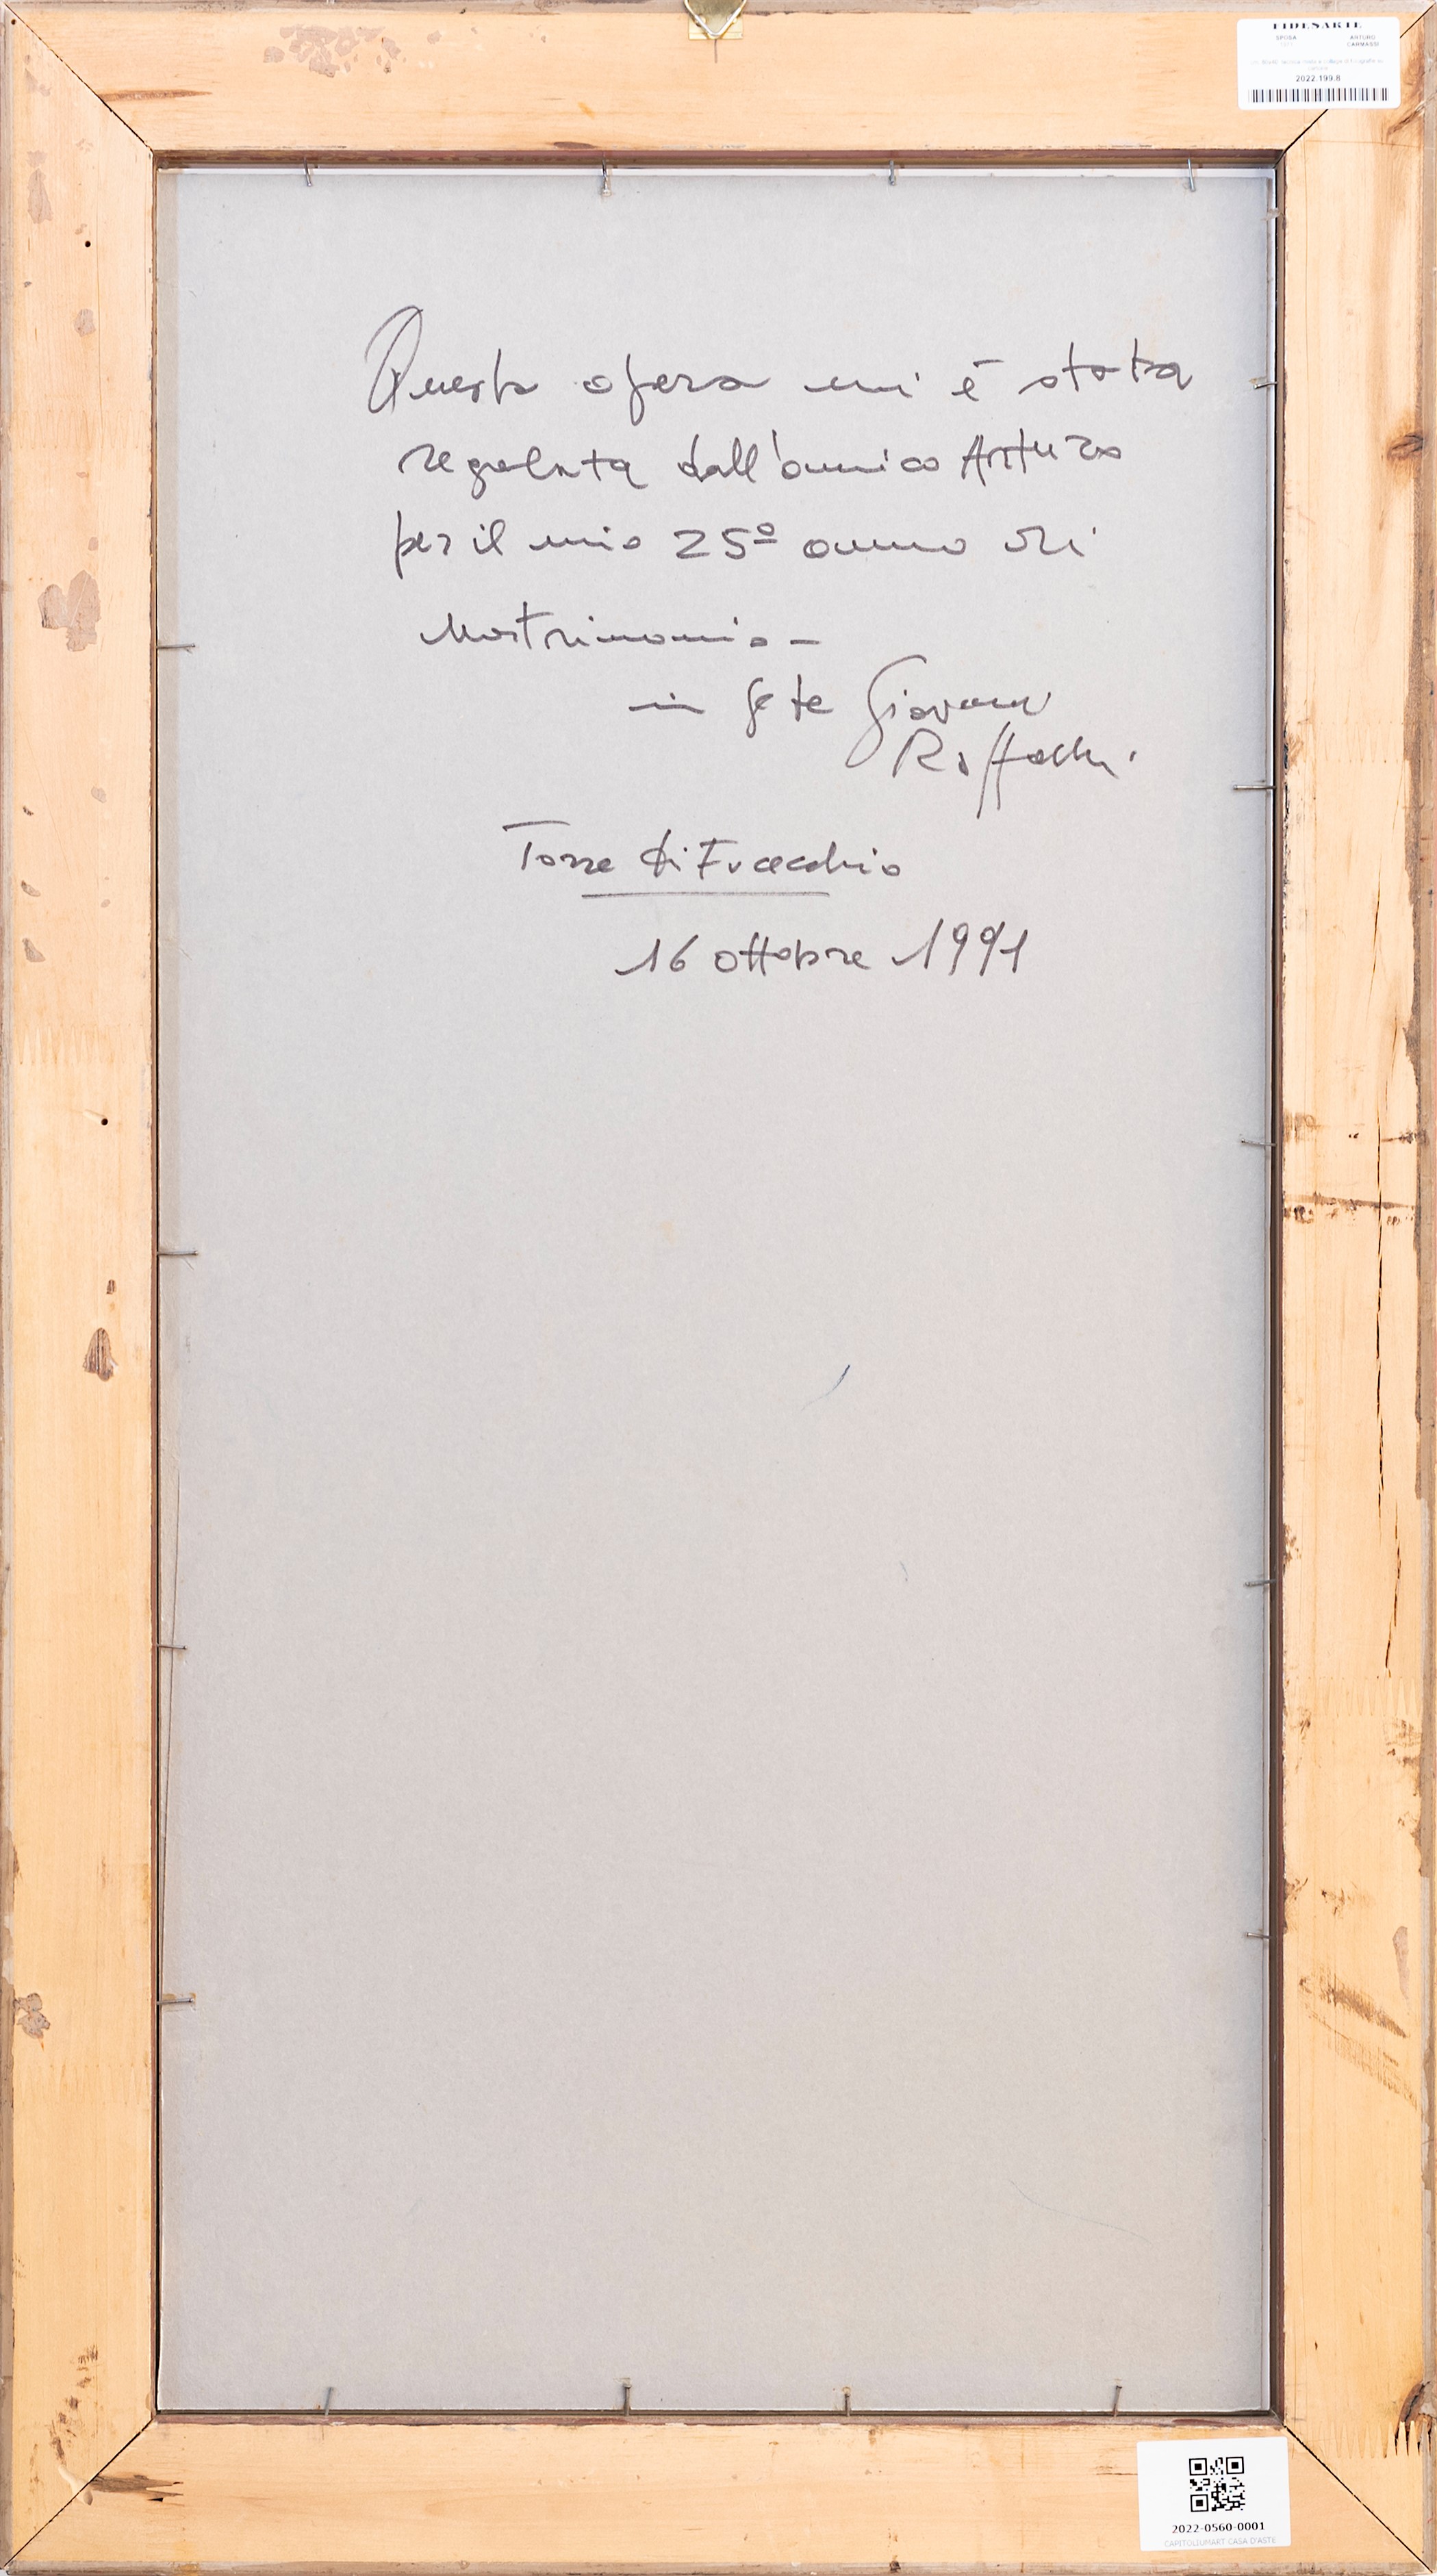 FIDESARTE
SPOSA
ARTURO
CARMASSI
2022.199.8
Questa opera mi è stata
regalata dall'amico Arturo
per il mio 25º anno di
Matrimonio -
in fede Giovanni
Torre di Fucecchio
16 ottobre 1991
2022-0560-0001
CAPITOLIUMART CASA D'ASTE